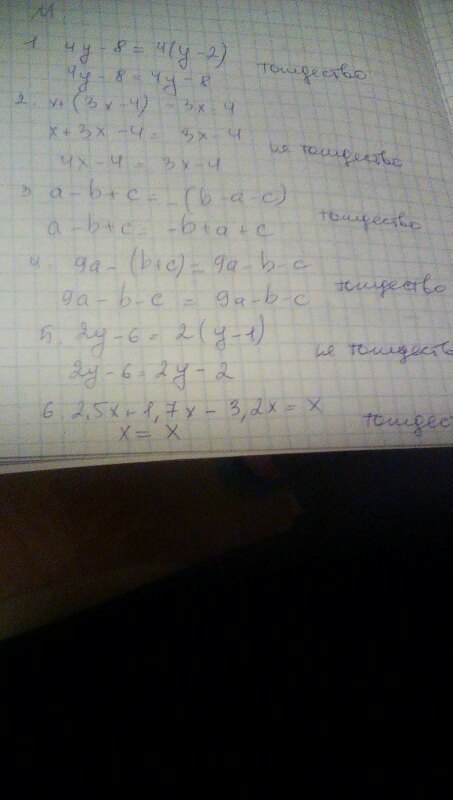 1. 4y - 8 = 4(y - 2)
4y - 8 = 4y - 8 тождество
2. x + (3x - 4) = 3x - 4
x + 3x - 4 = 3x - 4
4x - 4 = 3x - 4 не тождество
3. a - b + c = -(b - a - c)
a - b + c = -b + a + c тождество
4. 9a - (b + c) = 9a - b - c
9a - b - c = 9a - b - c тождество
5. 2y - 6 = 2(y - 1)
2y - 6 = 2y - 2 не тождеств
6. 2,5x + 1,7x - 3,2x = x
x = x тождест